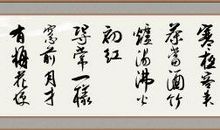 寒夜客來
茶當酒竹
爐湯沸火
初紅
尋常一樣
窗前月才
有梅花便